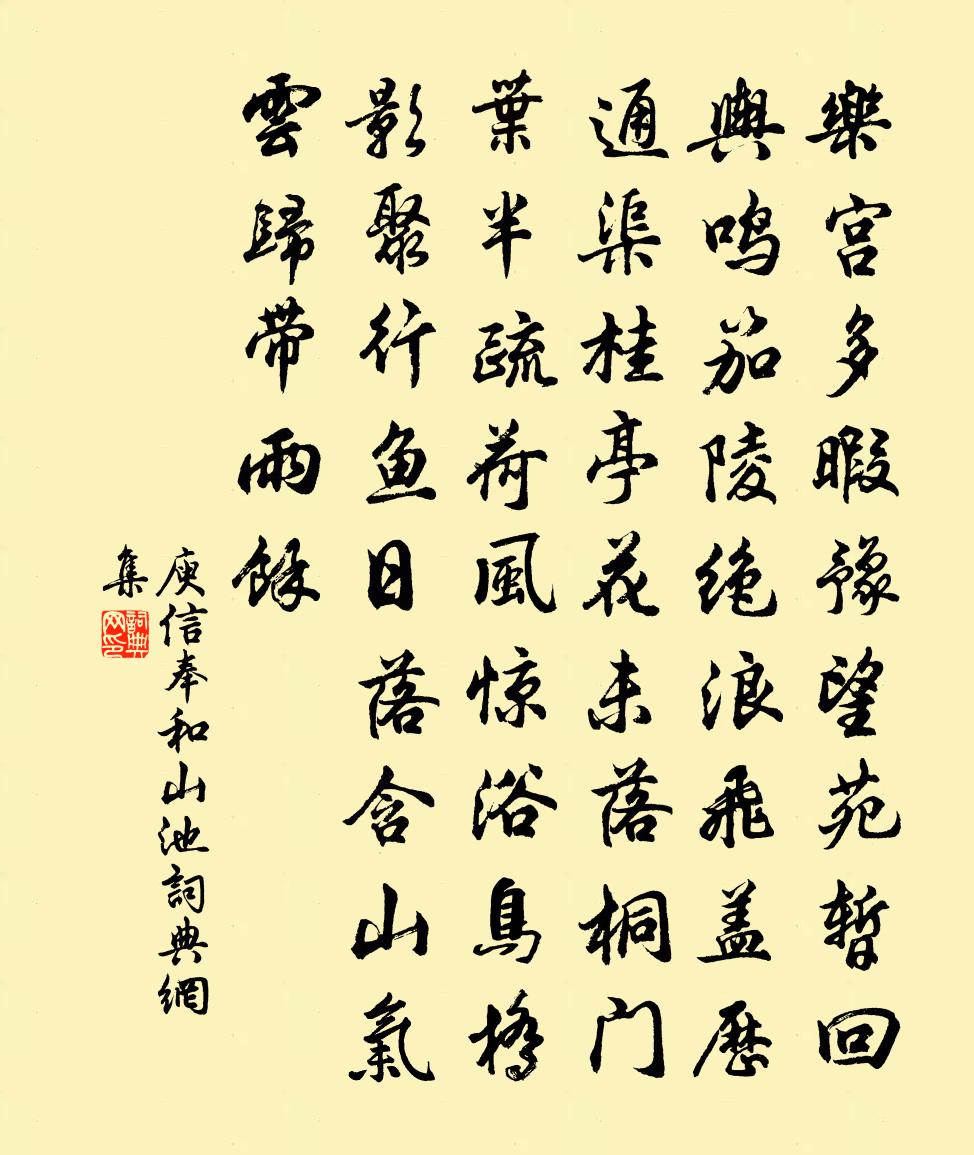 樂宫多暇豫望苑暫回
輿鳴笳陵絶浪飛盖歷
通渠桂亭花未落桐门
葉半疏荷風惊浴鳥橋
影聚行鱼日落含山氣
雲歸带雨餘
庾信奉和山池詞典網
集
詞典网印